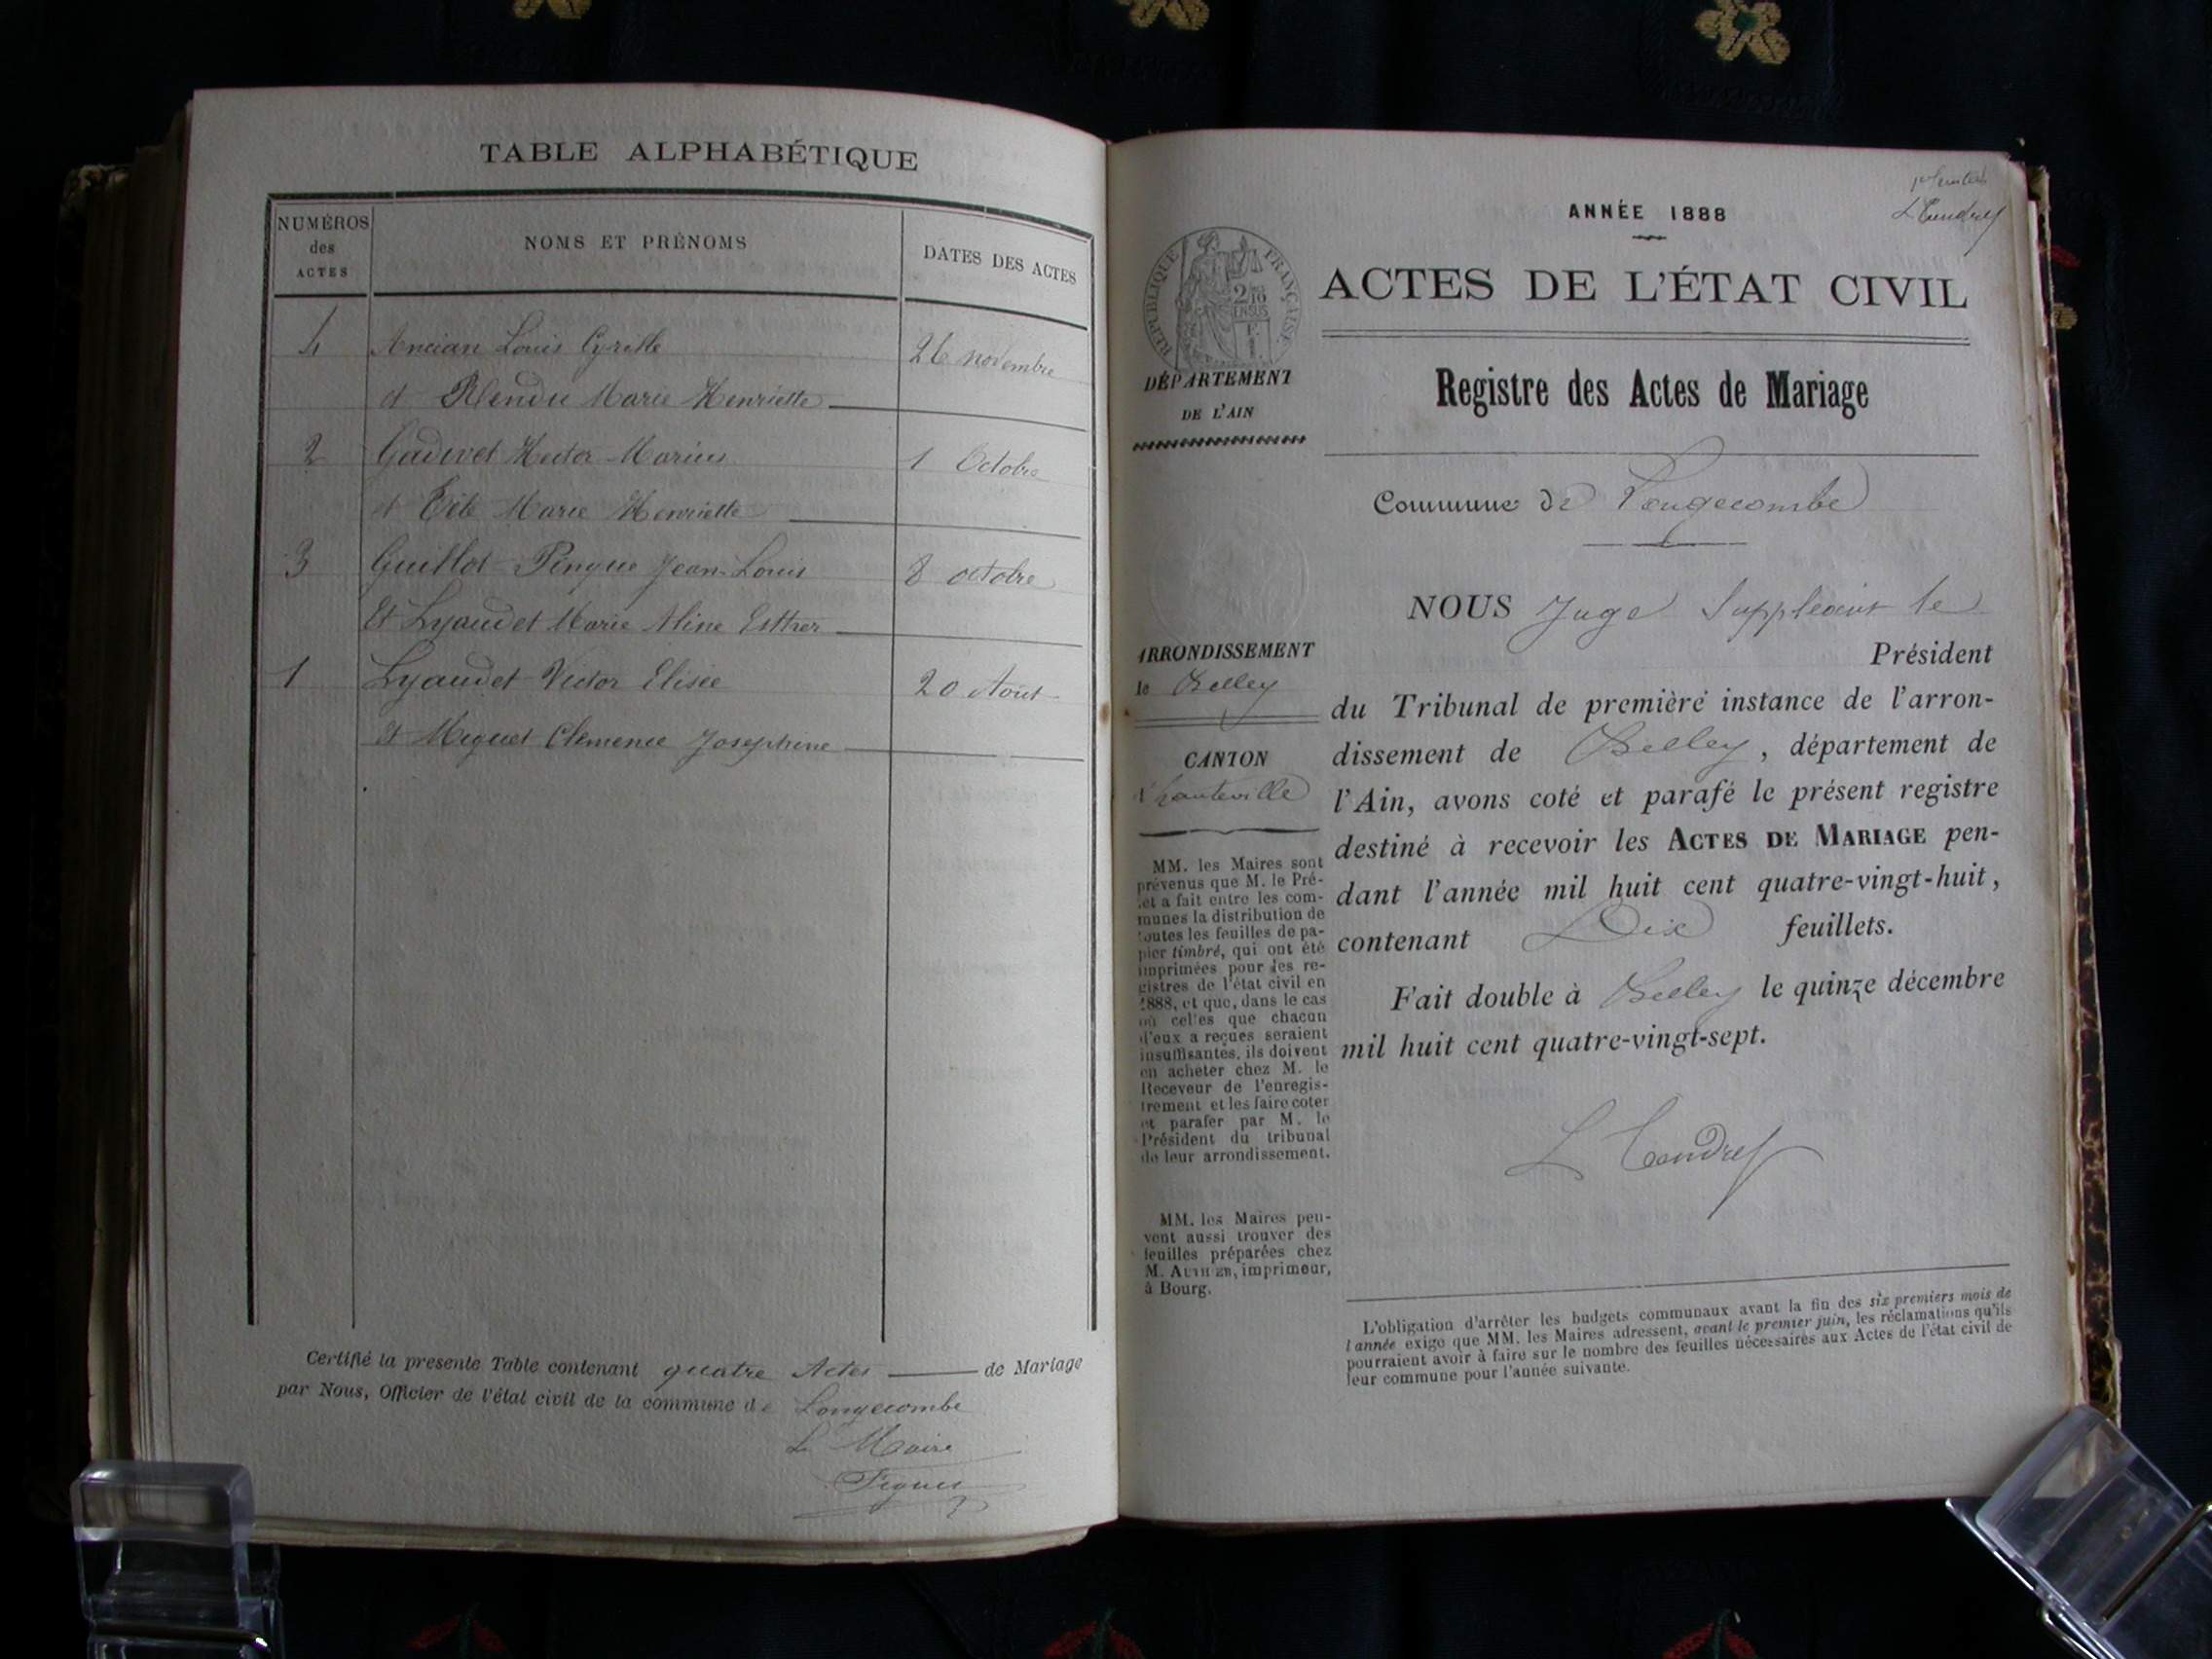 TABLE ALPHABÉTIQUE
NUMÉROS des ACTES
NOMS ET PRÉNOMS
DATES DES ACTES
4 Ancian Louis Cyrille 26 novembre
et Rendu Marie Henriette
2 Gaduet Hector Marius 1 Octobre
et Tête Marie Henriette
3 Guillot-Pingue Jean-Louis 8 octobre
Et Lyaudet Marie Aline Esther
1 Lyaudet Victor Elisée 20 Août
et Miguet Clemence Josephine
Certifié la presente Table contenant quatre Actes de Mariage
par Nous, Officier de l'état civil de la commune de Longecombe
Le Maire
ANNÉE 1888
RÉPUBLIQUE FRANÇAISE
2 10 EN SUS
ACTES DE L'ÉTAT CIVIL
DÉPARTEMENT
DE L'AIN
Registre des Actes de Mariage
Commune de Longecombe
NOUS Juge Suppléant le
Président
du Tribunal de première instance de l'arron-
dissement de Belley, département de
l'Ain, avons coté et parafé le présent registre
destiné à recevoir les ACTES DE MARIAGE pen-
dant l'année mil huit cent quatre-vingt-huit,
contenant Dix feuillets.
Fait double à Belley le quinze décembre
mil huit cent quatre-vingt-sept.
ARRONDISSEMENT
de Belley
CANTON
d'hauteville
MM. les Maires sont
prévenus que M. le Pré-
fet a fait entre les com-
munes la distribution de
toutes les feuilles de pa-
pier timbré, qui ont été
imprimées pour les re-
gistres de l'état civil en
1888, et que, dans le cas
où celles que chacun
d'eux a reçues seraient
insuffisantes, ils doivent
en acheter chez M. le
Receveur de l'enregis-
trement et les faire coter
et parafer par M. le
Président du tribunal
de leur arrondissement.
MM. les Maires peu-
vent aussi trouver des
feuilles préparées chez
M. AUTHIER, imprimeur,
à Bourg.
L'obligation d'arrêter les budgets communaux avant la fin des six premiers mois de
l'année exige que MM. les Maires adressent, avant le premier juin, les réclamations qu'ils
pourraient avoir à faire sur le nombre des feuilles nécessaires aux Actes de l'état civil de
leur commune pour l'année suivante.